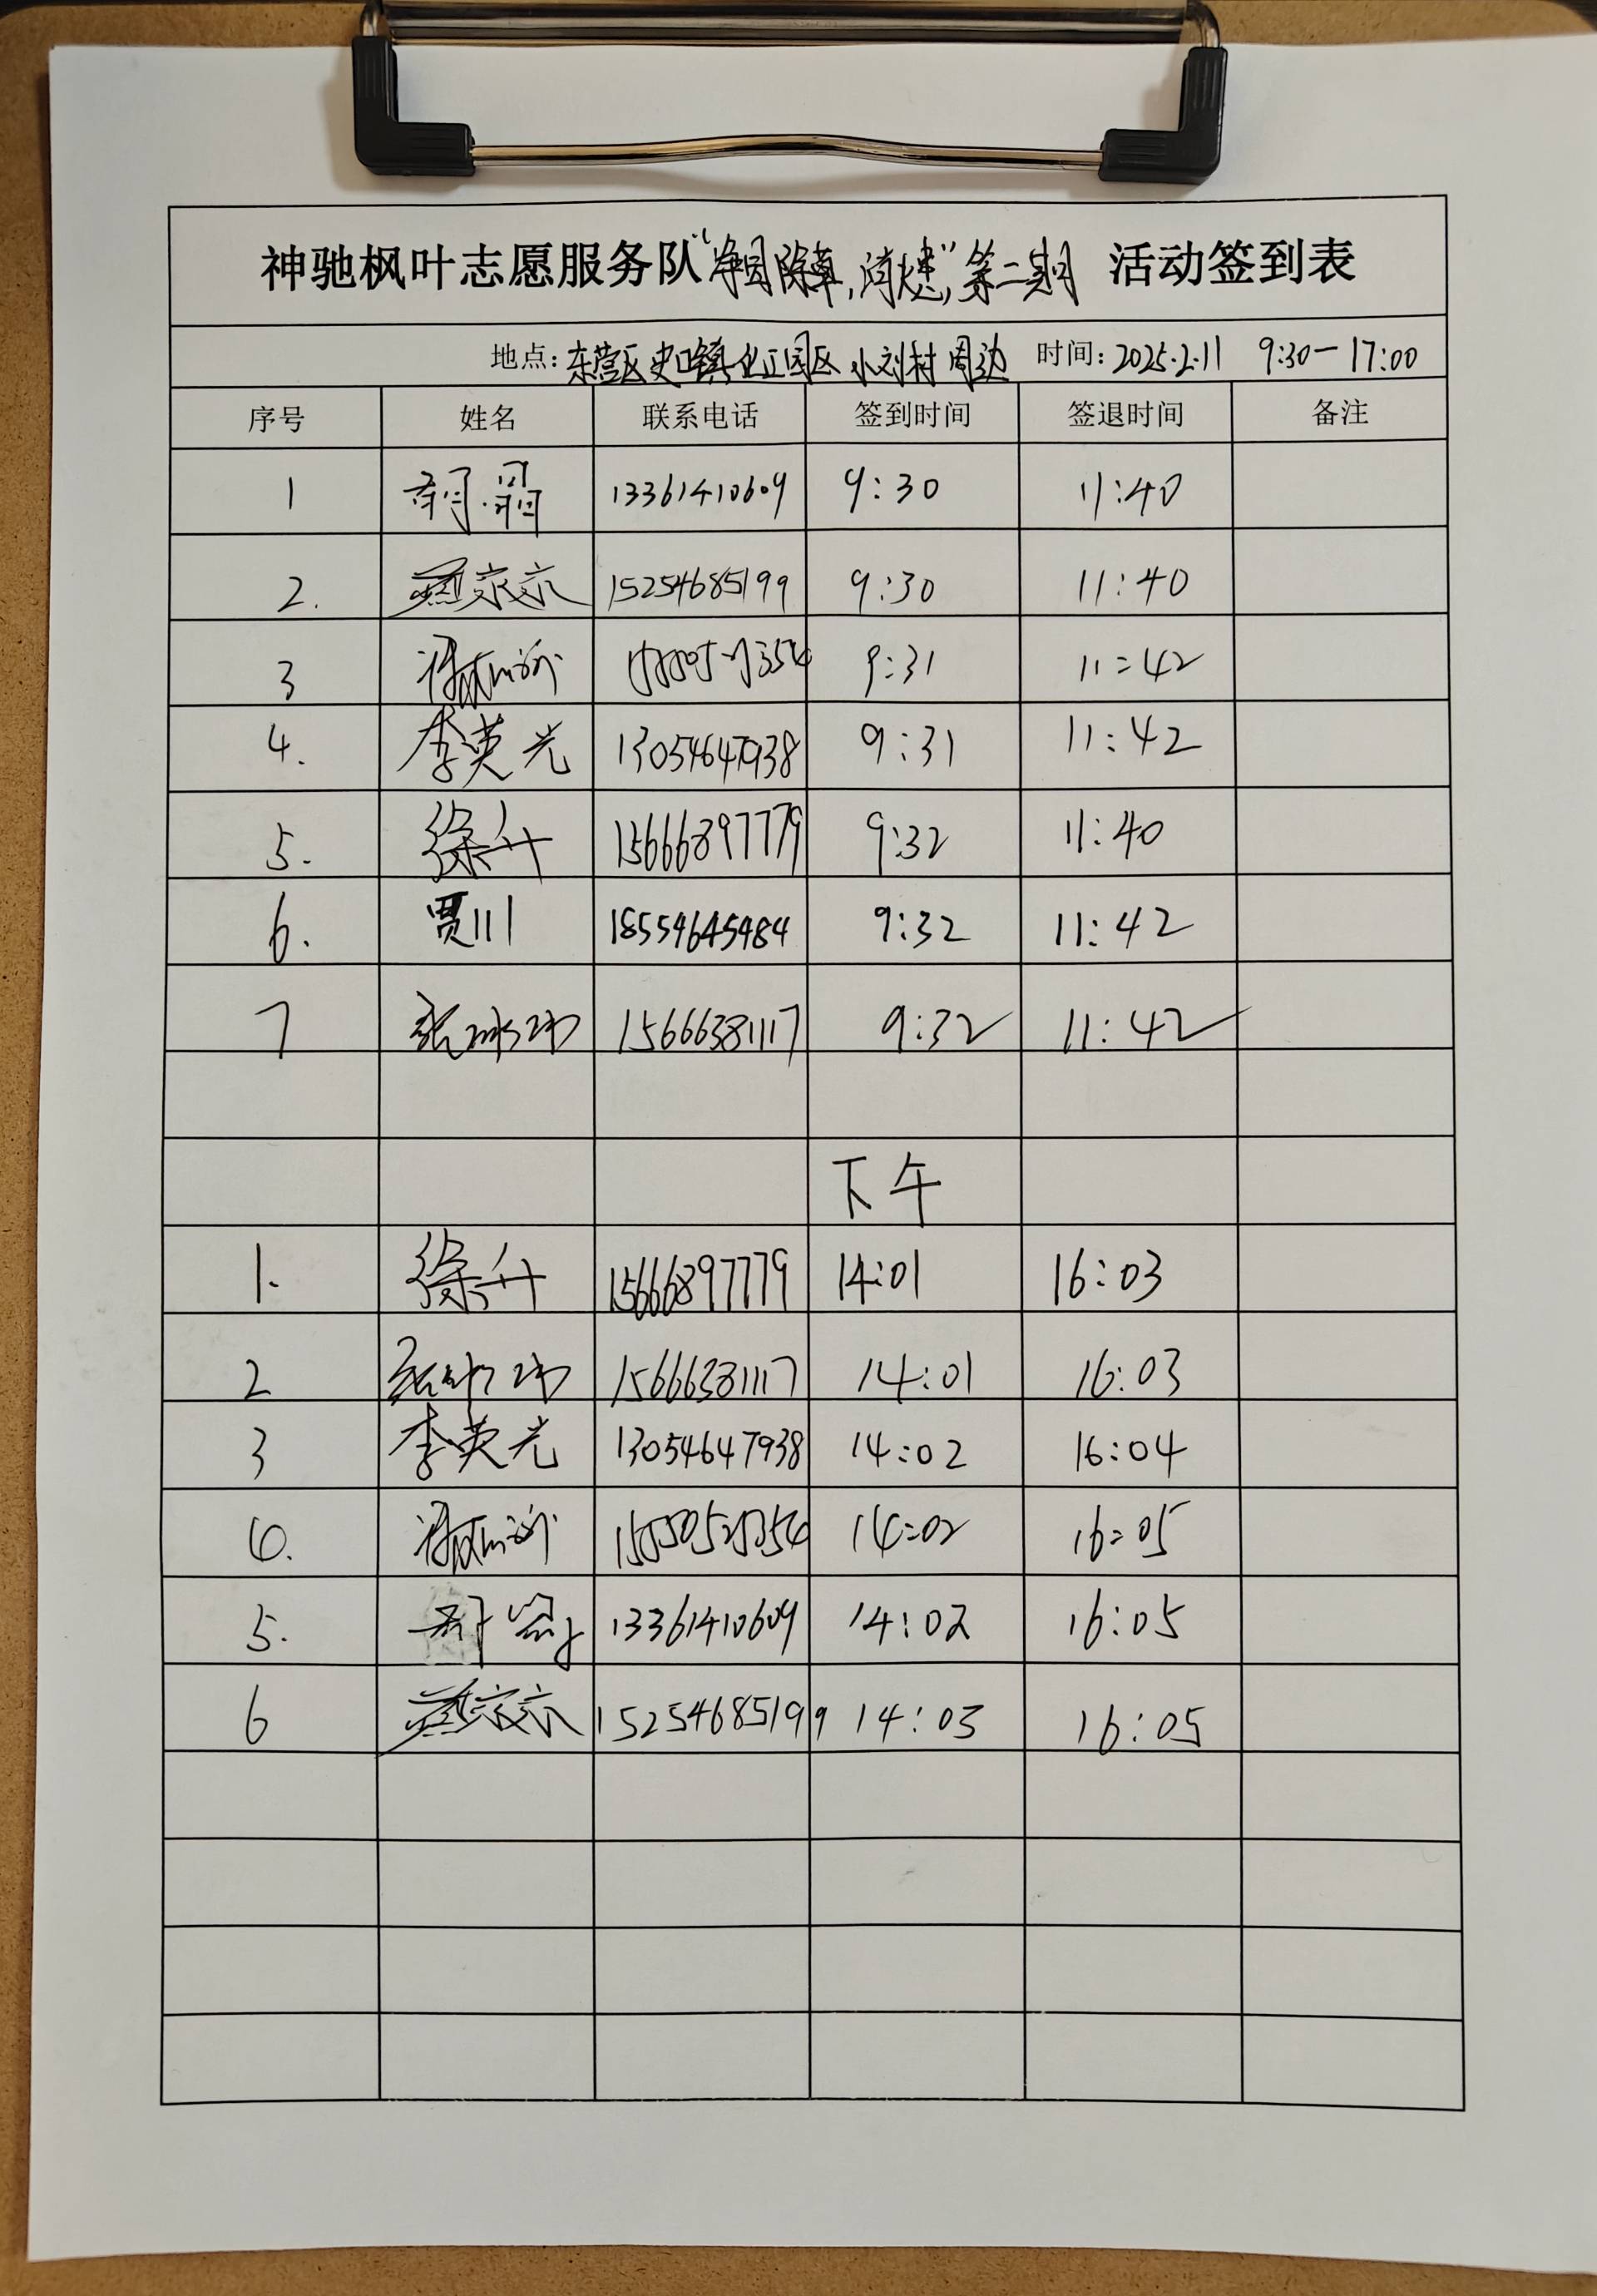 神驰枫叶志愿服务队“净园除草,清火患”,第二期 活动签到表
地点: 东营区史口镇化工园区 小刘村 周边 时间: 2025.2.11 9:30-17:00
序号 姓名 联系电话 签到时间 签退时间 备注
1 13361410609 9:30 11:40
2. 15254685199 9:30 11:40
3 9:31 11:42
4. 李英光 13054647938 9:31 11:42
5. 徐升 15666897779 9:32 11:40
6. 贾川 18554645484 9:32 11:42
7 15666381117 9:32 11:42
下午
1. 徐升 15666897779 14:01 16:03
2 15666381117 14:01 16:03
3 李英光 13054647938 14:02 16:04
4. 14:02 16:05
5. 13361410609 14:02 16:05
6 15254685199 14:03 16:05